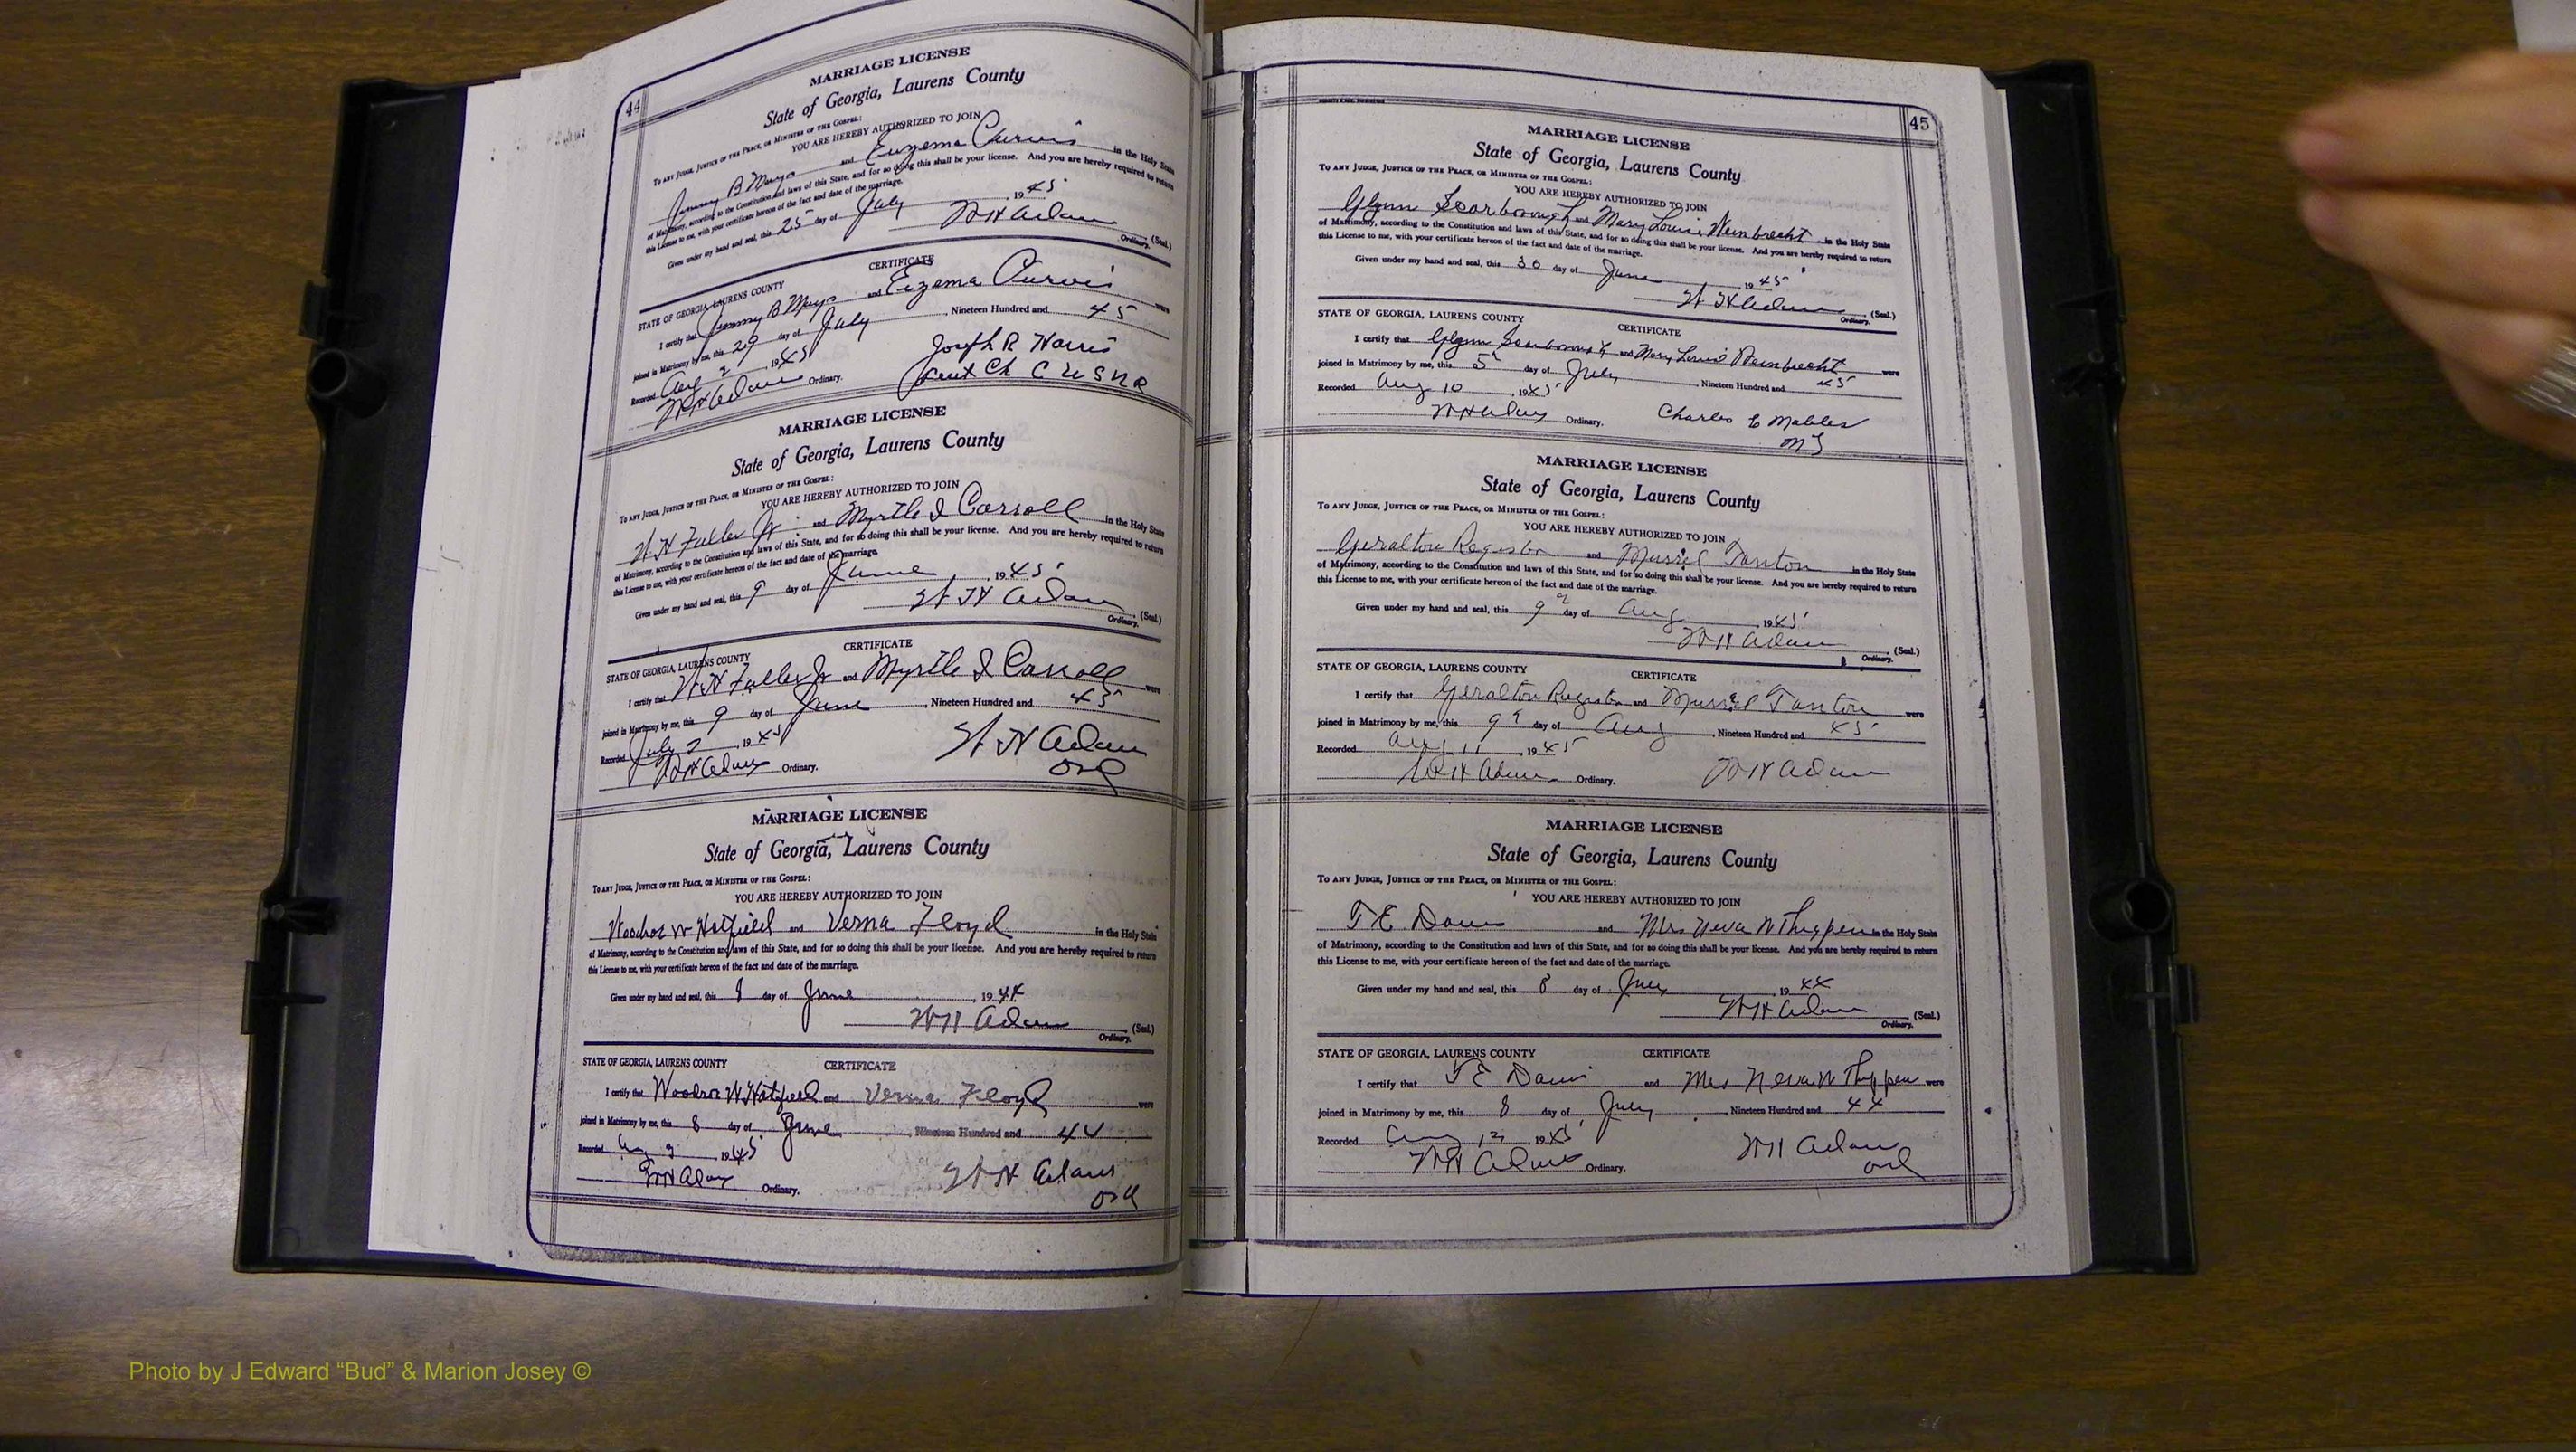 44
MARRIAGE LICENSE
State of Georgia, Laurens County
To ANY JUDGE, JUSTICE OF THE PEACE, OR MINISTER OF THE GOSPEL:
YOU ARE HEREBY AUTHORIZED TO JOIN
Jimmy B Mays and Euzema Purvis in the Holy State
of Matrimony, according to the Constitution and laws of this State, and for so doing this shall be your license. And you are hereby required to return
this License to me, with your certificate hereon of the fact and date of the marriage.
Given under my hand and seal, this 25 day of July 1945
W H Adams (Seal.)
Ordinary.
CERTIFICATE
STATE OF GEORGIA, LAURENS COUNTY
I certify that Jimmy B Mays and Euzema Purvis were
joined in Matrimony by me, this 29 day of July, Nineteen Hundred and 45
Recorded Aug 2, 1945
Joseph R Harris
W H Adams Ordinary.
Ch C USNR
MARRIAGE LICENSE
State of Georgia, Laurens County
To ANY JUDGE, JUSTICE OF THE PEACE, OR MINISTER OF THE GOSPEL:
YOU ARE HEREBY AUTHORIZED TO JOIN
W H Fuller Jr and Myrtle I Carroll in the Holy State
of Matrimony, according to the Constitution and laws of this State, and for so doing this shall be your license. And you are hereby required to return
this License to me, with your certificate hereon of the fact and date of the marriage.
Given under my hand and seal, this 9 day of June, 1945
W H Adams (Seal.)
Ordinary.
CERTIFICATE
STATE OF GEORGIA, LAURENS COUNTY
I certify that W H Fuller Jr and Myrtle I Carroll were
joined in Matrimony by me, this 9 day of June, Nineteen Hundred and 45
Recorded July 2, 1945
W H Adams
W H Adams Ordinary.
Ord
MARRIAGE LICENSE
State of Georgia, Laurens County
To ANY JUDGE, JUSTICE OF THE PEACE, OR MINISTER OF THE GOSPEL:
YOU ARE HEREBY AUTHORIZED TO JOIN
Woodrow W Hatfield and Verna Floyd in the Holy State
of Matrimony, according to the Constitution and laws of this State, and for so doing this shall be your license. And you are hereby required to return
this License to me, with your certificate hereon of the fact and date of the marriage.
Given under my hand and seal, this 8 day of June, 1944
W H Adams (Seal.)
Ordinary.
STATE OF GEORGIA, LAURENS COUNTY CERTIFICATE
I certify that Woodrow W Hatfield and Verna Floyd were
joined in Matrimony by me, this 8 day of June, Nineteen Hundred and 44
Recorded Aug 3, 1945
W H Adams Ordinary.
W H Adams
Ord
45
MARRIAGE LICENSE
State of Georgia, Laurens County
To ANY JUDGE, JUSTICE OF THE PEACE, OR MINISTER OF THE GOSPEL:
YOU ARE HEREBY AUTHORIZED TO JOIN
Glynn Scarborough and Mary Louise Weinbrecht in the Holy State
of Matrimony, according to the Constitution and laws of this State, and for so doing this shall be your license. And you are hereby required to return
this License to me, with your certificate hereon of the fact and date of the marriage.
Given under my hand and seal, this 30 day of June, 1945
W H Adams (Seal.)
Ordinary.
STATE OF GEORGIA, LAURENS COUNTY CERTIFICATE
I certify that Glynn Scarborough and Mary Louise Weinbrecht were
joined in Matrimony by me, this 5 day of July, Nineteen Hundred and 45
Recorded Aug 10, 1945
W H Adams Ordinary. Charles E Mables
MG
MARRIAGE LICENSE
State of Georgia, Laurens County
To ANY JUDGE, JUSTICE OF THE PEACE, OR MINISTER OF THE GOSPEL:
YOU ARE HEREBY AUTHORIZED TO JOIN
Geralton Register and Murriel Tanton in the Holy State
of Matrimony, according to the Constitution and laws of this State, and for so doing this shall be your license. And you are hereby required to return
this License to me, with your certificate hereon of the fact and date of the marriage.
Given under my hand and seal, this 9 day of Aug, 1945
W H Adams (Seal.)
Ordinary.
STATE OF GEORGIA, LAURENS COUNTY CERTIFICATE
I certify that Geralton Register and Murriel Tanton were
joined in Matrimony by me, this 9 day of Aug, Nineteen Hundred and 45
Recorded Aug 11, 1945
W H Adams Ordinary. W H Adams
MARRIAGE LICENSE
State of Georgia, Laurens County
To ANY JUDGE, JUSTICE OF THE PEACE, OR MINISTER OF THE GOSPEL:
YOU ARE HEREBY AUTHORIZED TO JOIN
T E Davis and Mrs Neva N Thigpen in the Holy State
of Matrimony, according to the Constitution and laws of this State, and for so doing this shall be your license. And you are hereby required to return
this License to me, with your certificate hereon of the fact and date of the marriage.
Given under my hand and seal, this 8 day of July, 1944
W H Adams (Seal.)
Ordinary.
STATE OF GEORGIA, LAURENS COUNTY CERTIFICATE
I certify that T E Davis and Mrs Neva N Thigpen were
joined in Matrimony by me, this 8 day of July, Nineteen Hundred and 44
Recorded Aug 12, 1945
W H Adams Ordinary. W H Adams
Ord
Photo by J Edward “Bud” & Marion Josey ©